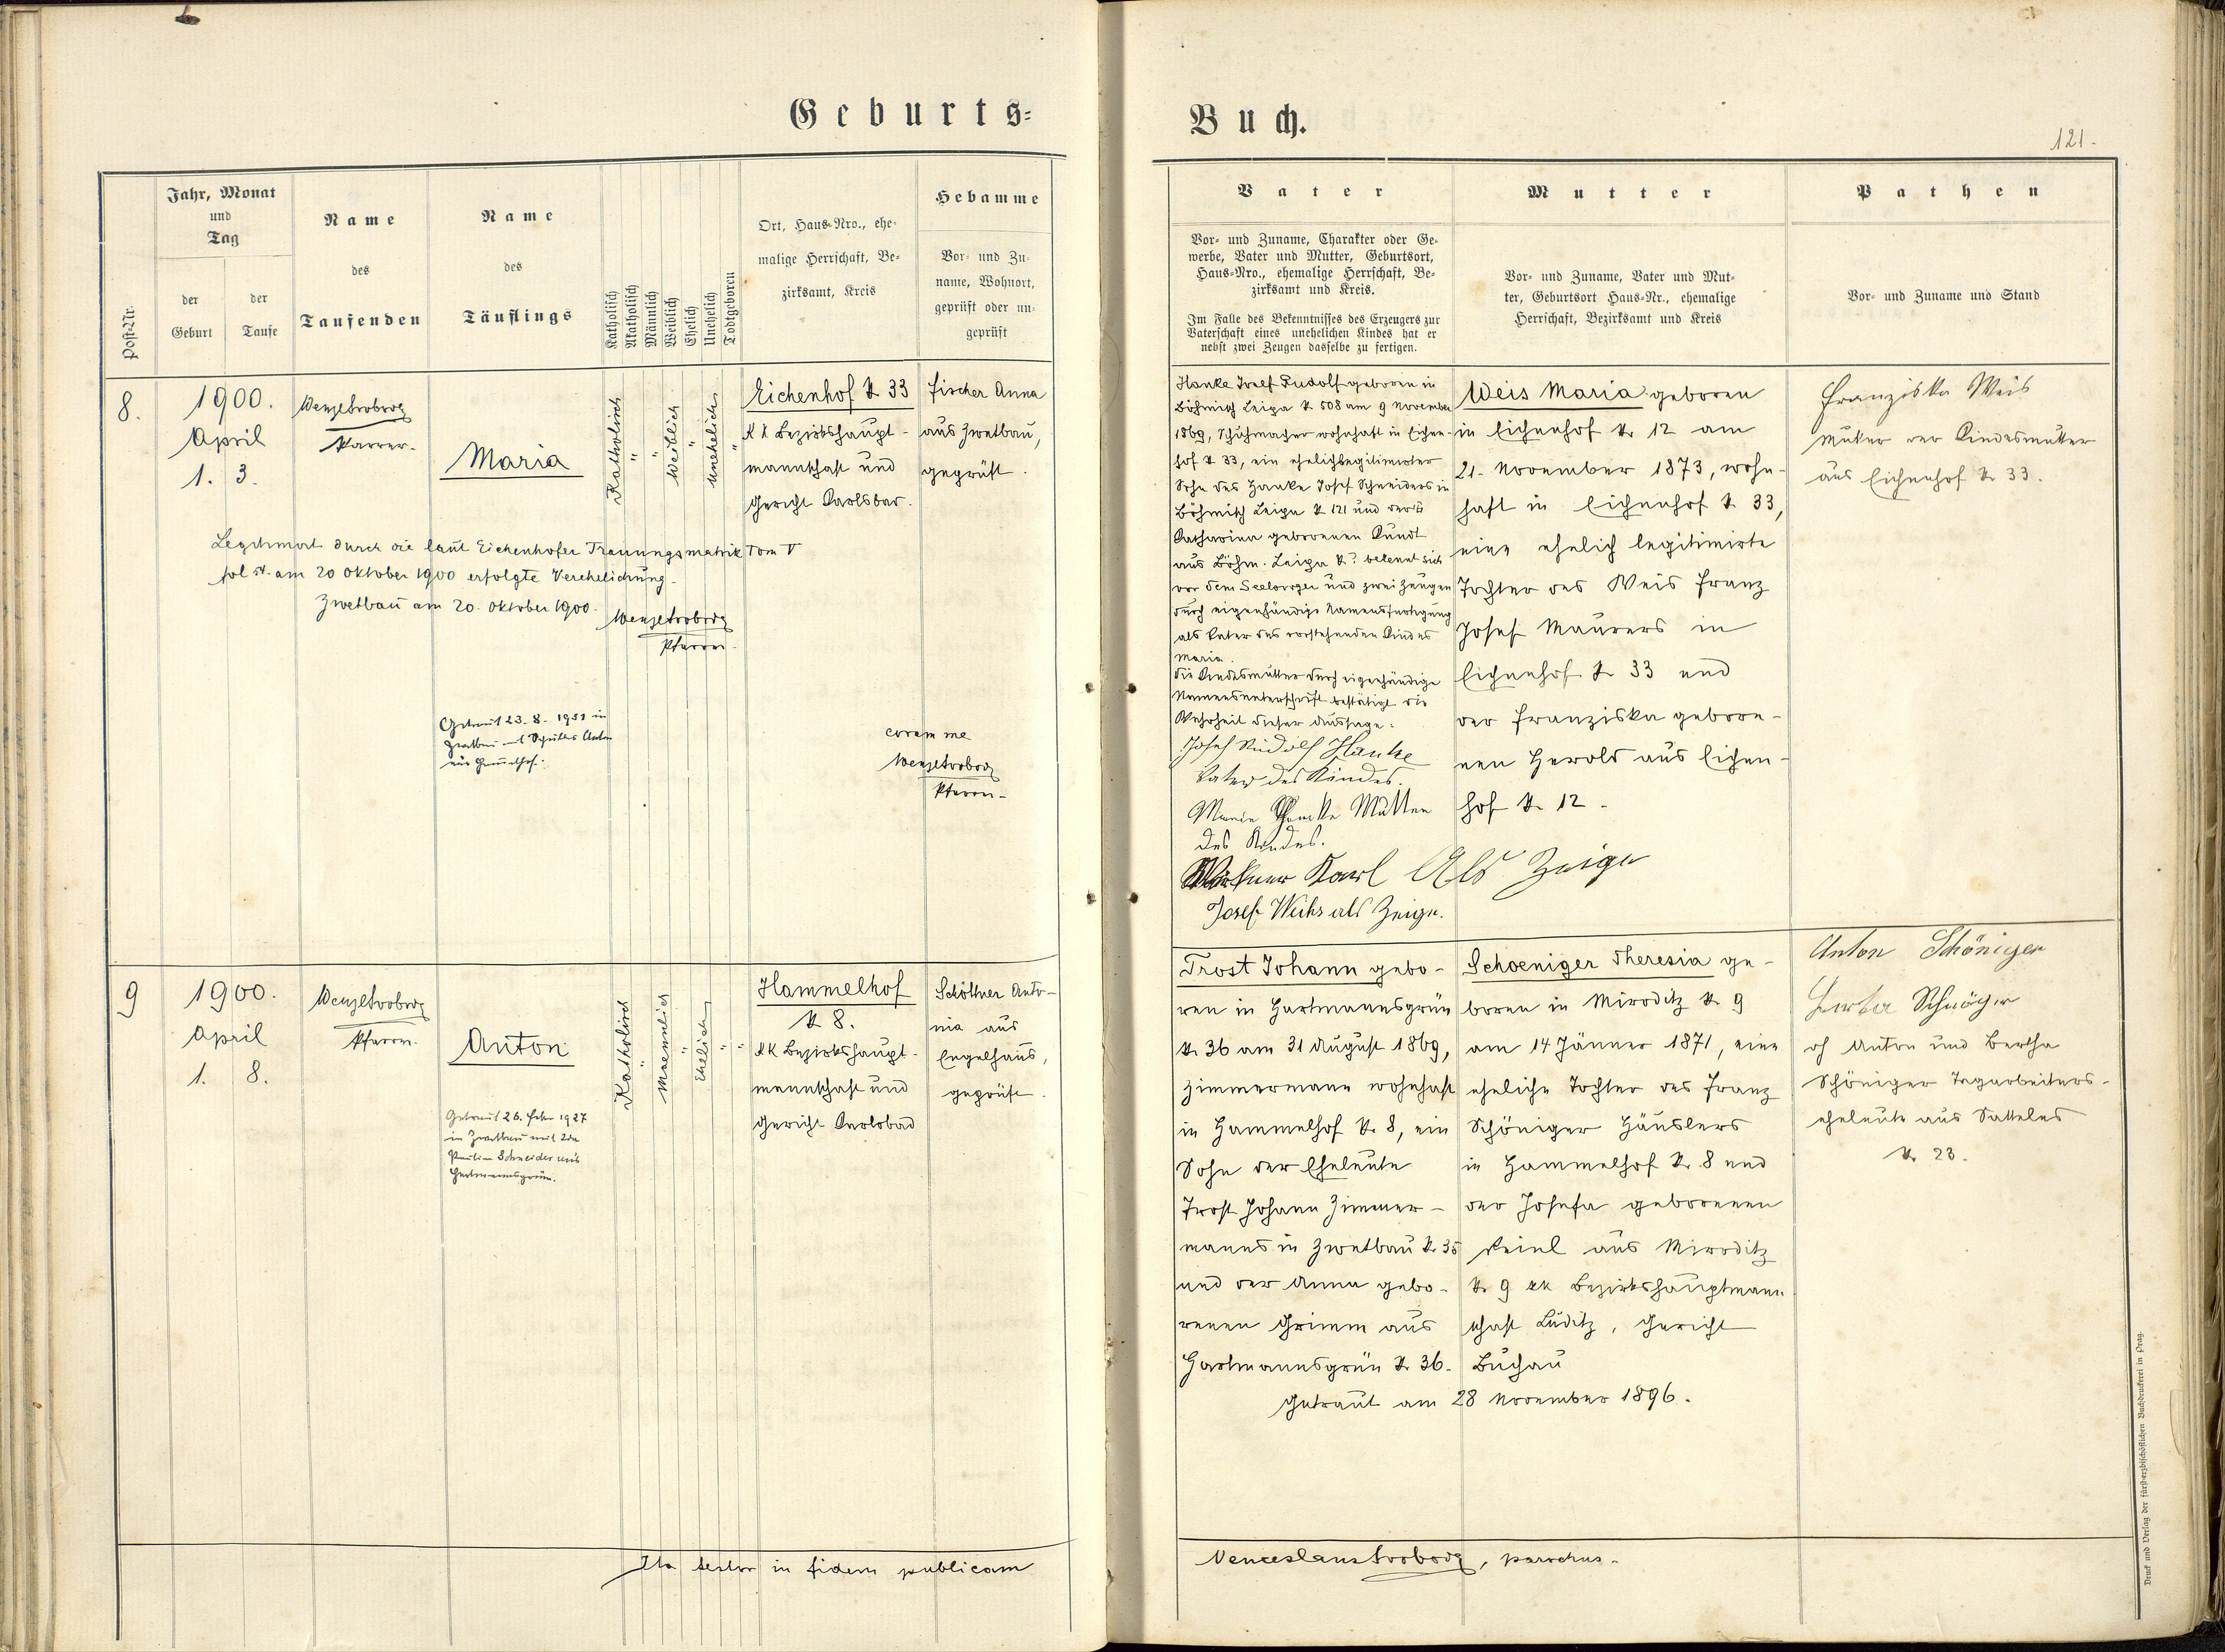 Geburts=
Buch.
121.
Post-Nr.
Jahr, Monat
und
Tag
der
Geburt
der
Taufe
Name
des
Taufenden
Name
des
Täuflings
Katholisch
Akatholisch
Männlich
Weiblich
Ehelich
Unehelich
Todtgeboren
Ort, Haus-Nro., ehe-
malige Herrschaft, Be-
zirksamt, Kreis
Hebamme
Vor- und Zu-
name, Wohnort,
geprüft oder un-
geprüft
Vater
Vor- und Zuname, Charakter oder Ge-
werbe, Vater und Mutter, Geburtsort,
Haus-Nro., ehemalige Herrschaft, Be-
zirksamt und Kreis.
Im Falle des Bekenntnisses des Erzeugers zur
Vaterschaft eines unehelichen Kindes hat er
nebst zwei Zeugen dasselbe zu fertigen.
Mutter
Vor- und Zuname, Vater und Mut-
ter, Geburtsort Haus-Nr., ehemalige
Herrschaft, Bezirksamt und Kreis
Pathen
Vor- und Zuname und Stand
8.
1900.
April
1. 3.
Wenzel Svoboda
Pfarrer.
Maria
Katholisch
"
"
Weiblich
"
Unehelich
"
Eichenhof N 33
KK Bezirkshaupt-
mannschaft und
Gericht Karlsbad.
Fischer Anna
aus Zwetbau,
geprüft.
Legitimirt durch die laut Eichenhofer Trauungsmatrik Tom V
am 20 Oktober 1900 erfolgte Verehelichung.
Zwetbau am 20. Oktober 1900.
Wenzel Svoboda
Pfarrer.
Getraut 23.8.1951 in
Zwetbau mit Anton
aus
coram me
Wenzel Svoboda
Pfarrer
Hanke Josef Rudolf geboren in
Böhmisch Leipa N 508 am 9 November
1869, Schuhmacher wohnhaft in Eichen-
hof N 33, ein ehelichlegitimirter
Sohn des Hanke Josef Schneiders in
Böhmisch Leipa N 121 und der
Katharina geborenen Kundt
aus Böhm. Leipa N? bekennt sich
vor dem Seelsorger und zwei Zeugen
durch eigenhändige Namensfertigung
als Vater des vorstehenden Kindes
Maria.
Die Kindesmutter durch eigenhändige
Namensunterschrift bestätigt die
Wahrheit dieser Aussage.
Josef Rudolf Hanke
Vater des Kindes.
Maria Hanke Mutter
des Kindes.
Karl Als Zeige
Josef als Zeige.
Weis Maria geboren
in Eichenhof N 12 am
21. November 1873, wohn-
haft in Eichenhof N 33,
eine ehelich legitimirte
Tochter des Weis Franz
Josef Maurers in
Eichenhof N 33 und
der Franziska gebore-
nen Herold aus Eichen-
hof N 12.
Franziska Weis
Mutter der Kindesmutter
aus Eichenhof N 33.
9
1900.
April
1. 8.
Wenzel Svoboda
Pfarrer.
Anton
Katholisch
"
Maennlich
"
Ehelich
"
"
Hammelhof
N 8.
KK Bezirkshaupt-
mannschaft und
Gericht Karlsbad
Schöttner Anto-
nia aus
Engelhaus,
geprüft.
Getraut 26. Feber 1927
in Zwetbau mit Ida
Paulina Schneider aus
Hartmannsgrün.
Trost Johann gebo-
ren in Hartmannsgrün
N 36 am 31 August 1869,
Zimmermann wohnhaft
in Hammelhof N 8, ein
Sohn der Eheleute
Trost Johann Zimmer-
manns in Zwetbau N 35
und der Anna gebo-
renen Grimm aus
Hartmannsgrün N 36.
Schoeniger Theresia ge-
boren in Miroditz N 9
am 14 Jänner 1871, eine
eheliche Tochter des Franz
Schöniger Häuslers
in Hammelhof N 8 und
der Josefa geborenen
aus Miroditz
N 9 kk Bezirkshauptmann-
schaft Luditz, Gericht
Buchau
Getraut am 28 November 1896.
Anton Schöniger
of Anton und Bertha
Schöniger Tagarbeiters-
eheleute aus Satteles
N 23.
Ita testor in fidem publicam
Venceslaus Svoboda, parochus.
Druck und Verlag der fürsterzbischöflichen Buchdruckerei in Prag.